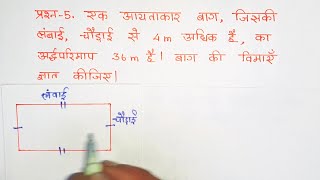 प्रश्न-5. एक आयताकार बाग, जिसकी
लंबाई, चौड़ाई से 4 m अधिक है, का
अर्द्धपरिमाप 36 m है। बाग की विमाएँ
ज्ञात कीजिए।
लंबाई
चौड़ाई